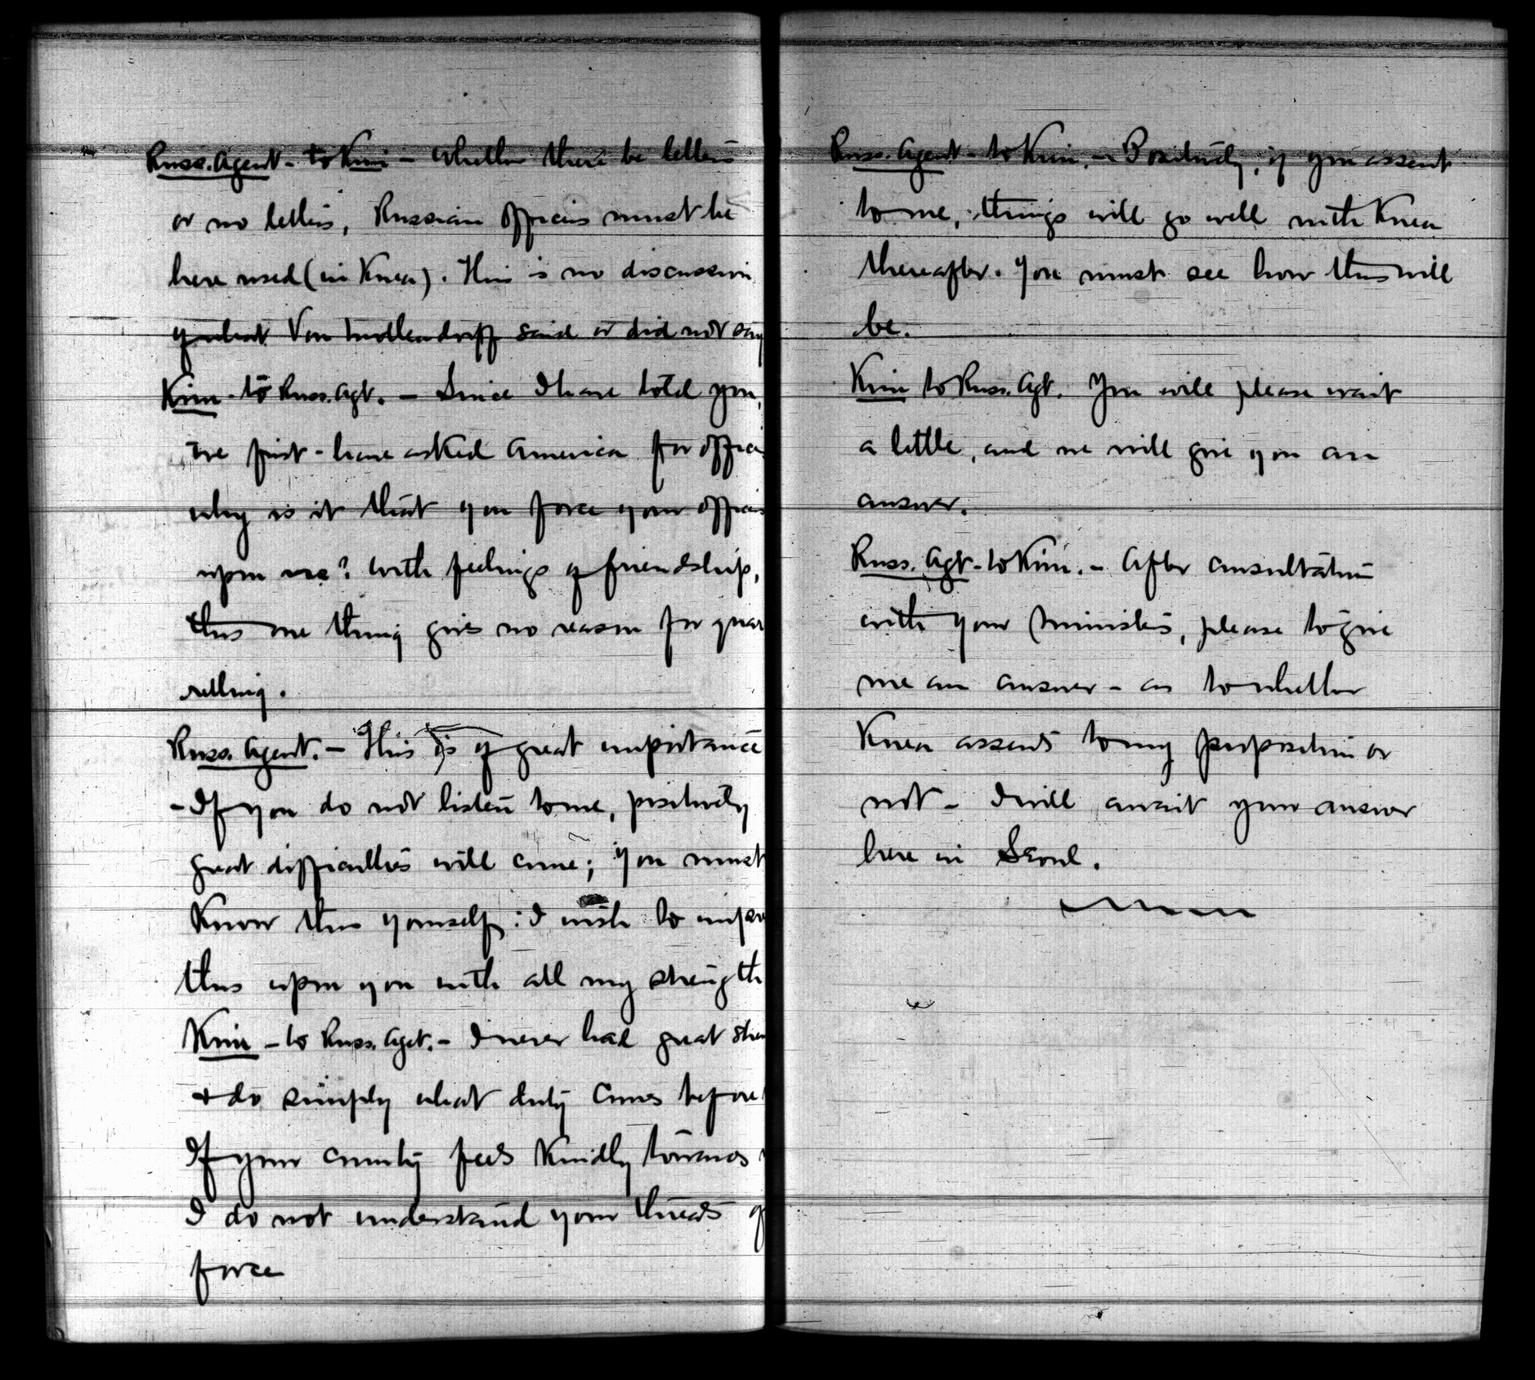 Russ. Agent - to Kim - Whether there be letters
or no letters, Russian officers must be
here used (in Korea). This is no discussion
of what Von Mollendorff said or did not say
Kim - to Russ. Agt. - Since I have told you,
we first - have asked America for officers
why is it that you force your officers
upon us? With feelings of friendship,
this one thing gives no reason for quar
relling.
Russ. Agent. - This is of great importance
- If you do not listen to me, positively
great difficulties will come; you must
know this yourself: I wish to impress
this upon you with all my strength
Kim - to Russ. Agt. - I never had great
& do simply what duty comes before
If your country feels kindly towards
I do not understand your threats of
force
Russ. Agent - to Kim. - Positively, if you assent
to me, things will go well with Korea
thereafter. You must see how this will
be.
Kim to Russ. Agt. You will please wait
a little, and we will give you an
answer.
Russ. Agt - to Kim. - After consultation
with your Ministers, please to give
me an answer - as to whether
Korea assents to my proposition or
not - I will await your answer
here in Seoul.